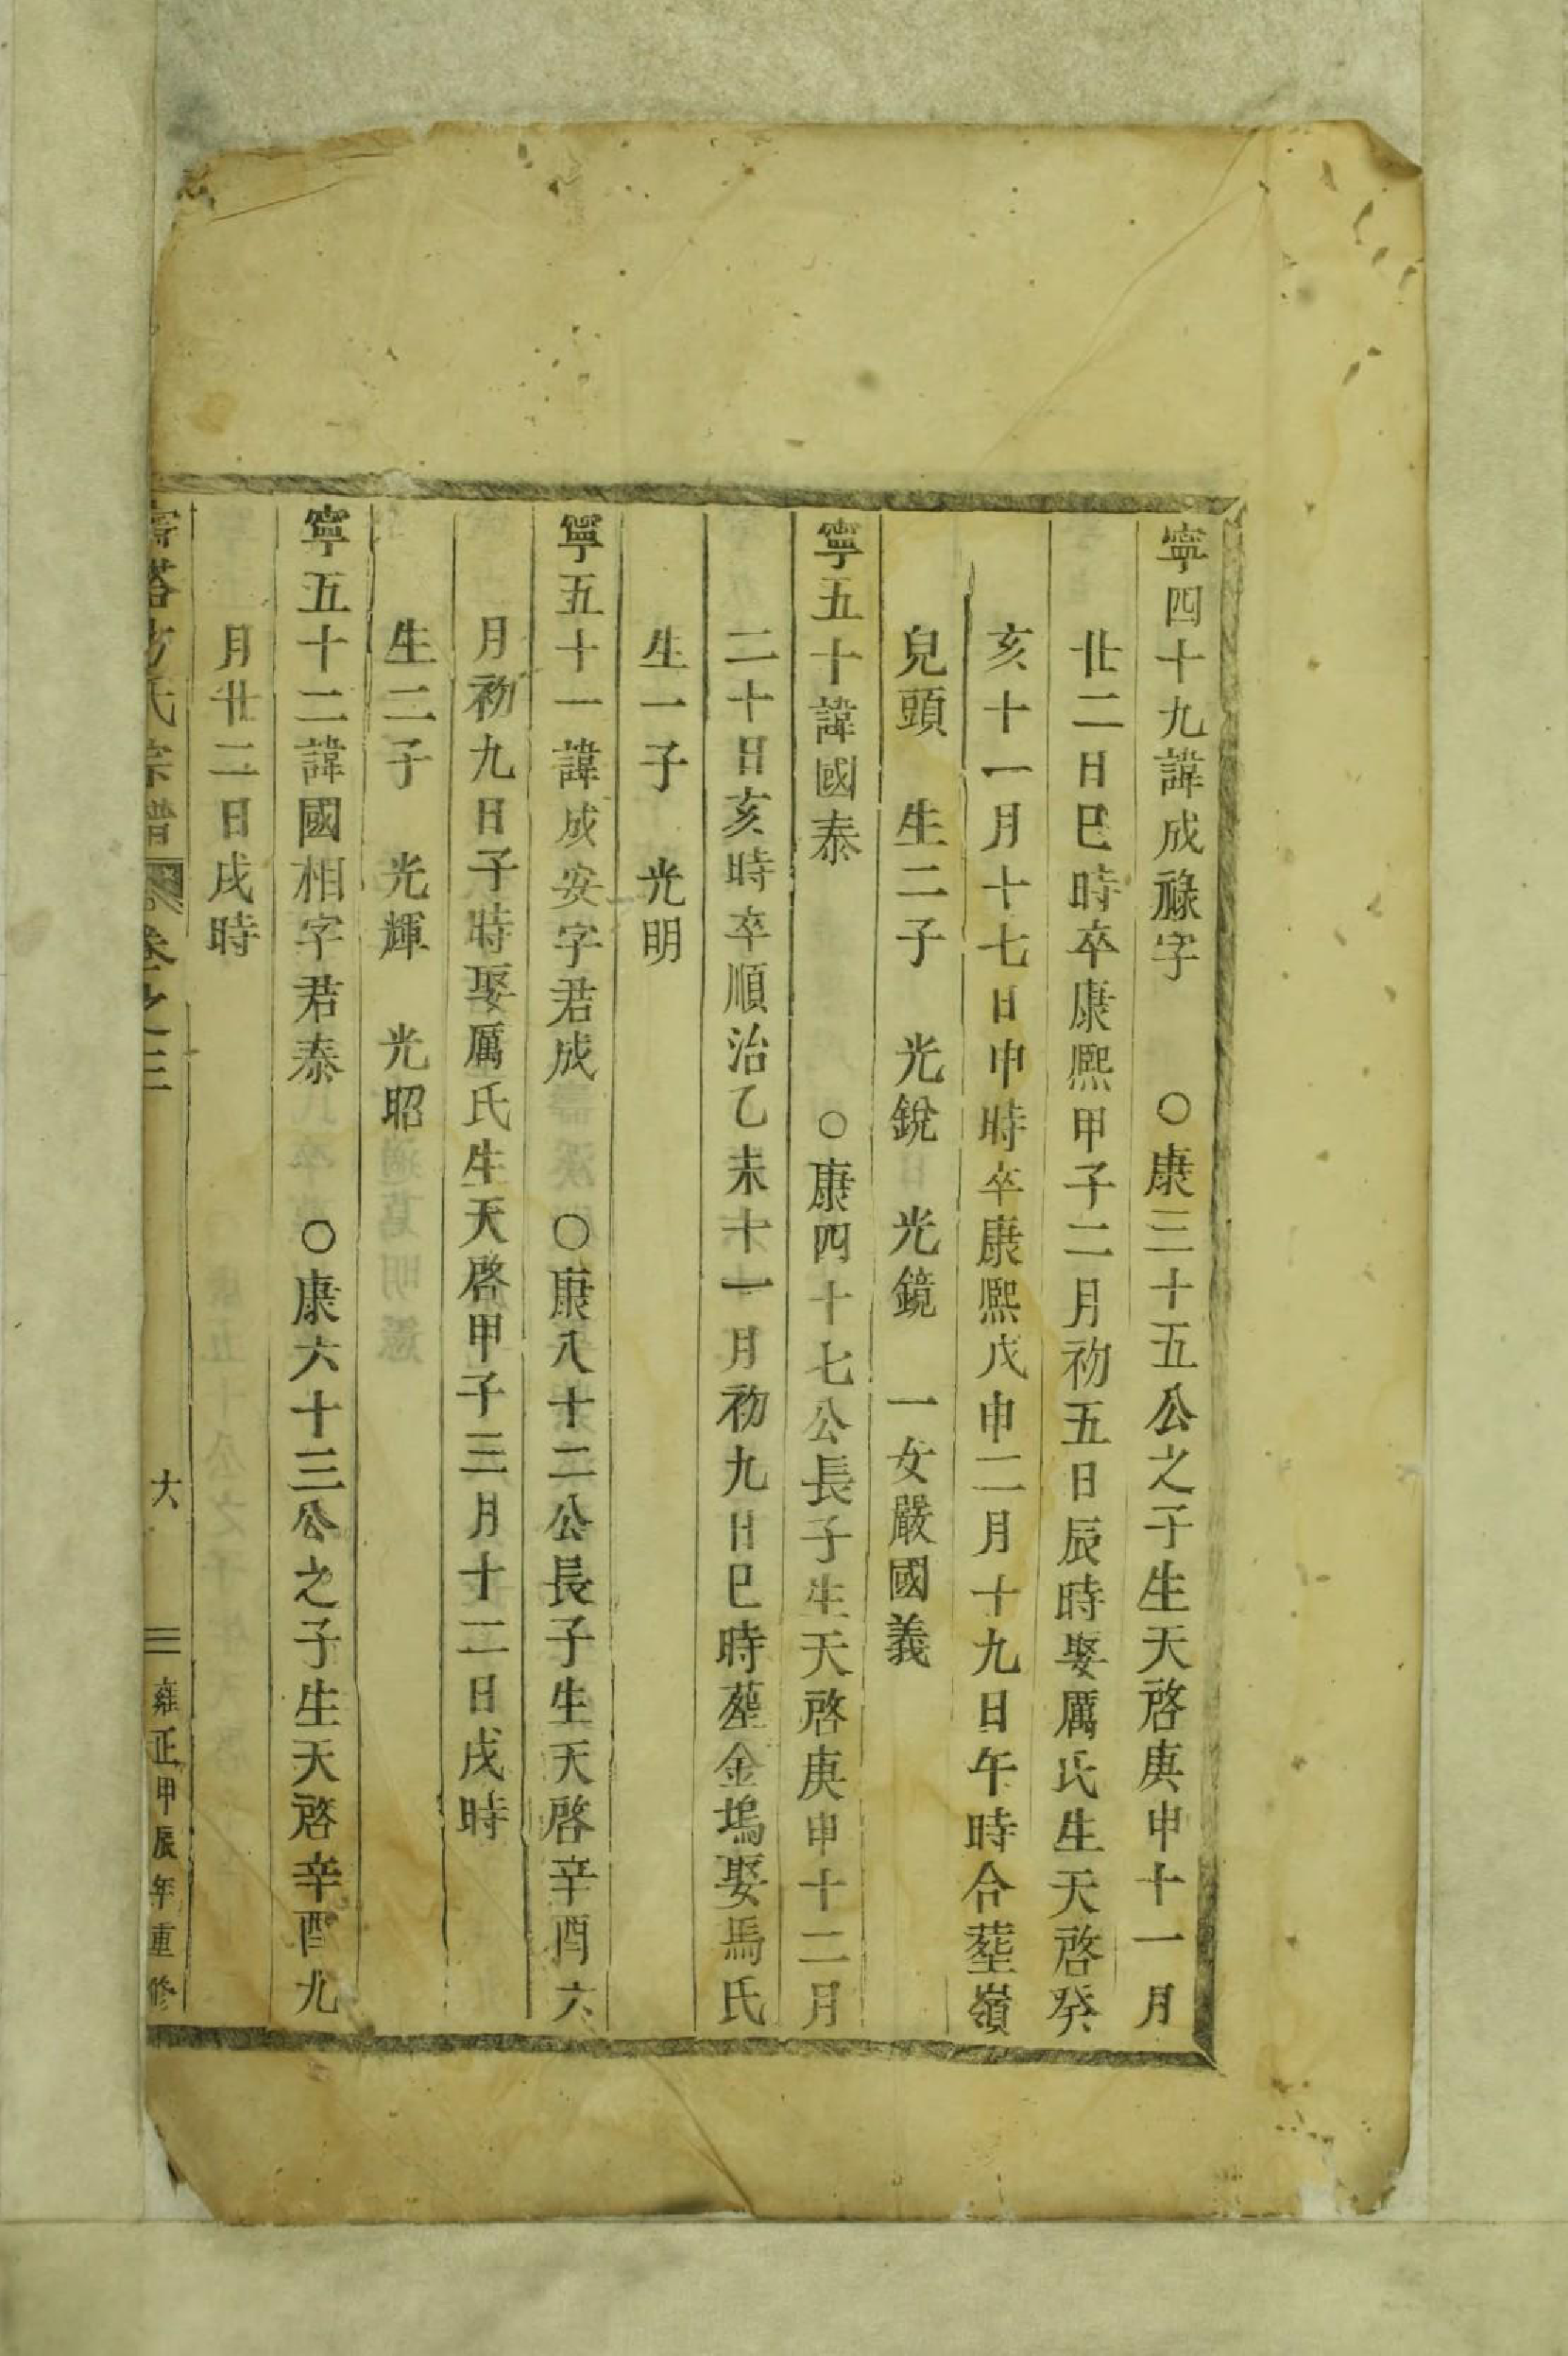 寧四十九諱成祿字　　○康三十五公之子生天啓庚申十一月
廿二日巳時卒康熙甲子二月初五日辰時娶厲氏生天啓癸
亥十一月十七日申時卒康熙戊申二月十九日午時合塟嶺
兒頭　生二子　光銳　光鏡　一女嚴國義
寧五十諱國泰　　　　○康四十七公長子生天啓庚申十二月
二十日亥時卒順治乙未十一月初九日巳時塟金塢娶馬氏
生一子　光明
寧五十一諱成安字君成　　○康八十二公長子生天啓辛酉六
月初九日子時娶厲氏生天啓甲子三月十二日戌時
生二子　光輝　光昭
寧五十二諱國相字君泰　　○康六十三公之子生天啓辛酉九
月廿二日戌時
氏宗譜　卷之三　　　六　　雍正甲辰年重修